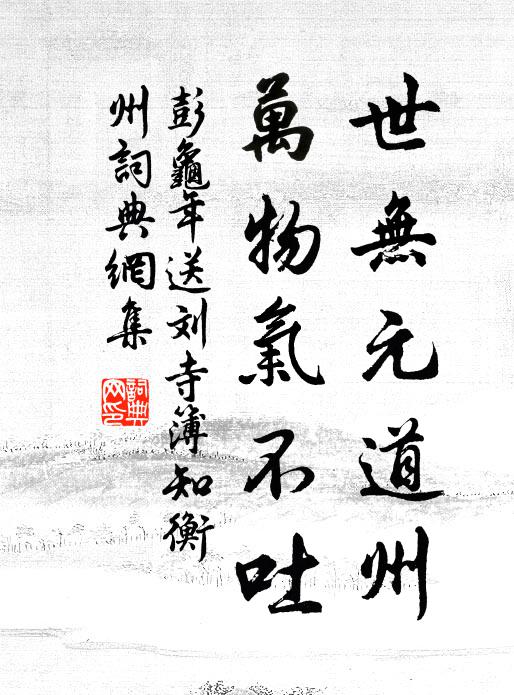 世無元道州
萬物氣不吐
彭龜年送刘寺簿知衡
州詞典網集
詞典網印